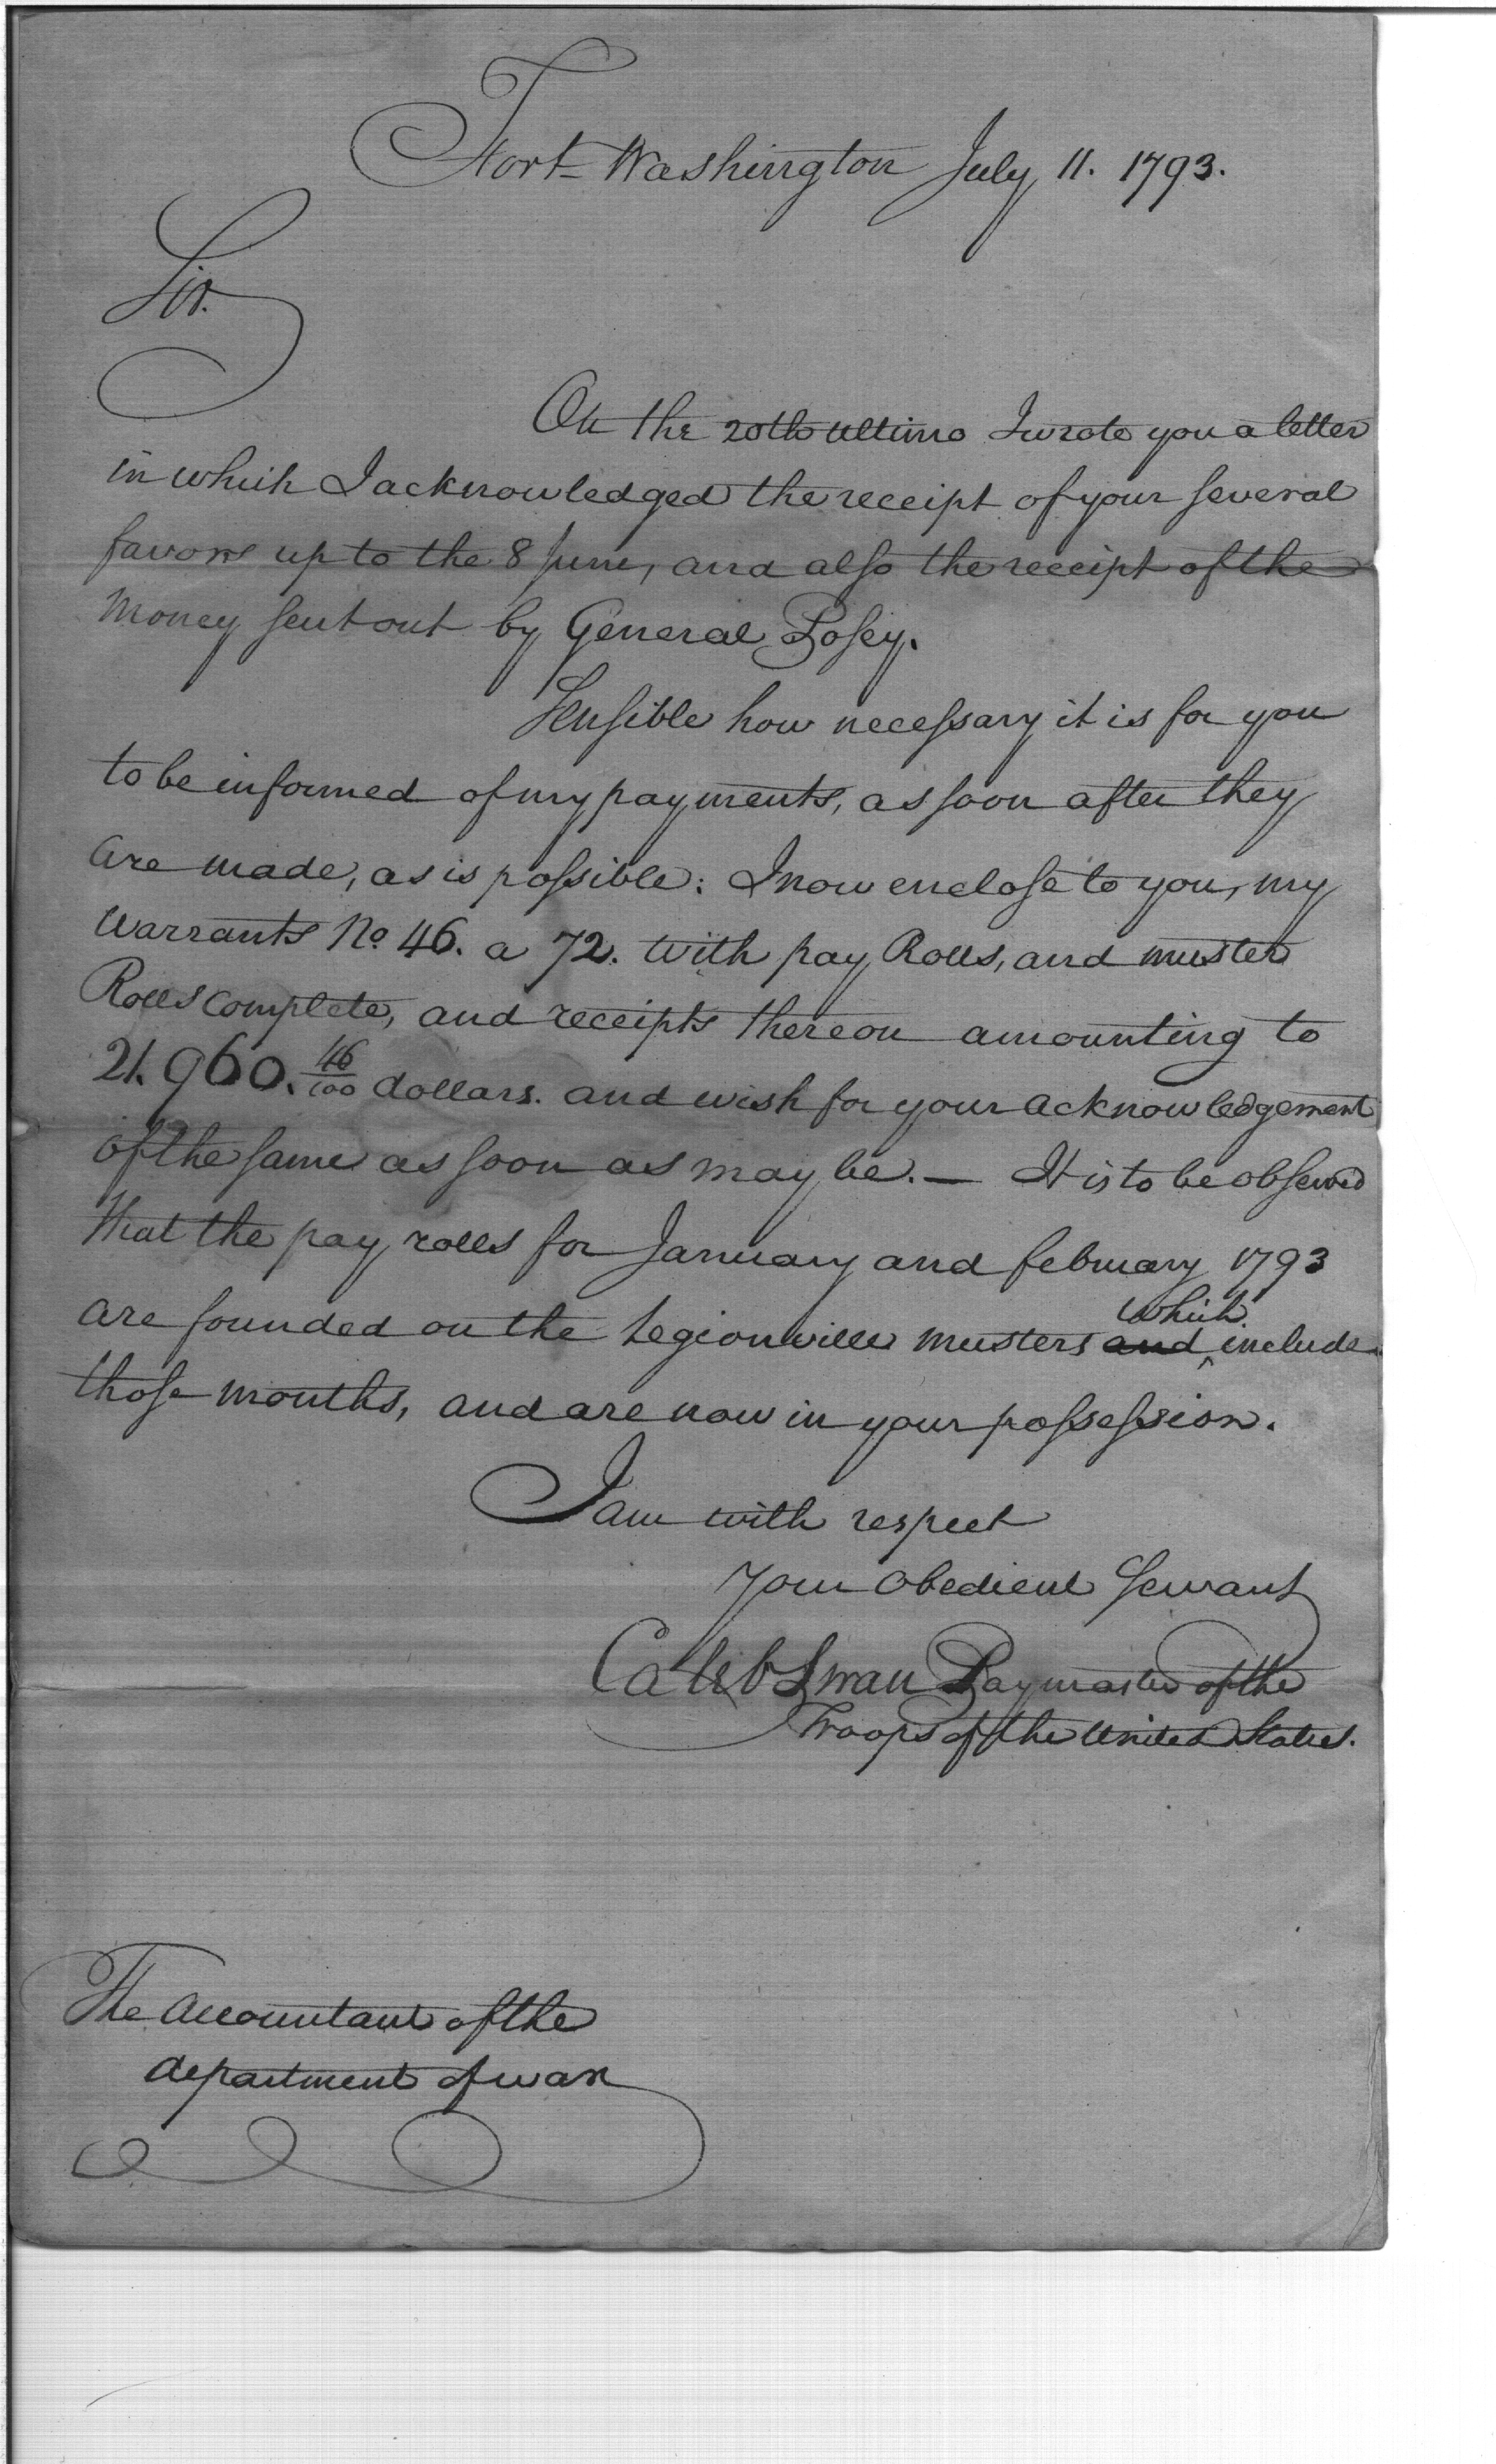 Fort Washington July 11. 1793.
Sir.
On the 20th ultimo I wrote you a letter
in which I acknowledged the receipt of your several
favors up to the 8 June, and also the receipt of the
money sent out by General Posey.
Sensible how necessary it is for you
to be informed of my payments, as soon after they
are made, as is possible: I now enclose to you, my
Warrants No. 46. a 72. with pay Rolls, and muster
Rolls complete, and receipts thereon amounting to
21.960. 46/100 dollars. and wish for your acknowledgement
of the same as soon as may be. — It is to be observed
that the pay rolls for January and february 1793
which
are founded on the Legionville musters and ^ include
those months, and are now in your possession.
I am with respect
Your obedient Servant
Caleb Swan Paymaster of the
Troops of the United States.
The Accountant of the
department of war